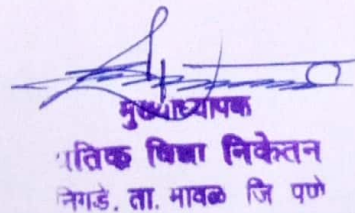 मुख्याध्यापक
विद्या निकेतन
निगडे. ता. मावळ जि पुणे